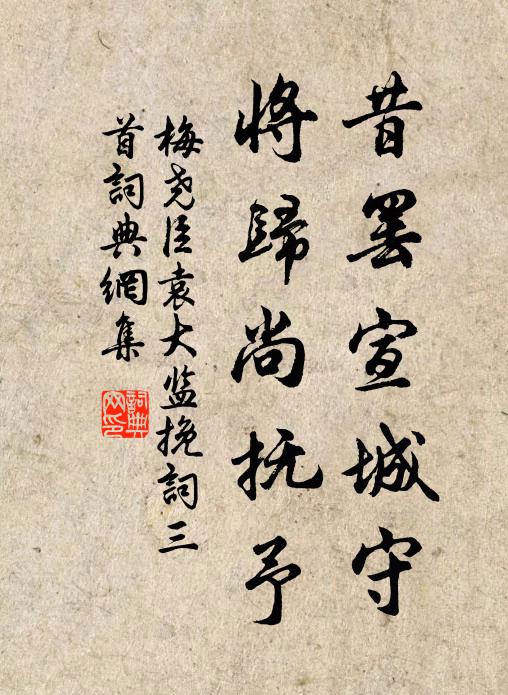 昔罢宣城守
将歸尚抚予
梅尧臣袁大监挽詞三
首詞典網集
詞典
网印